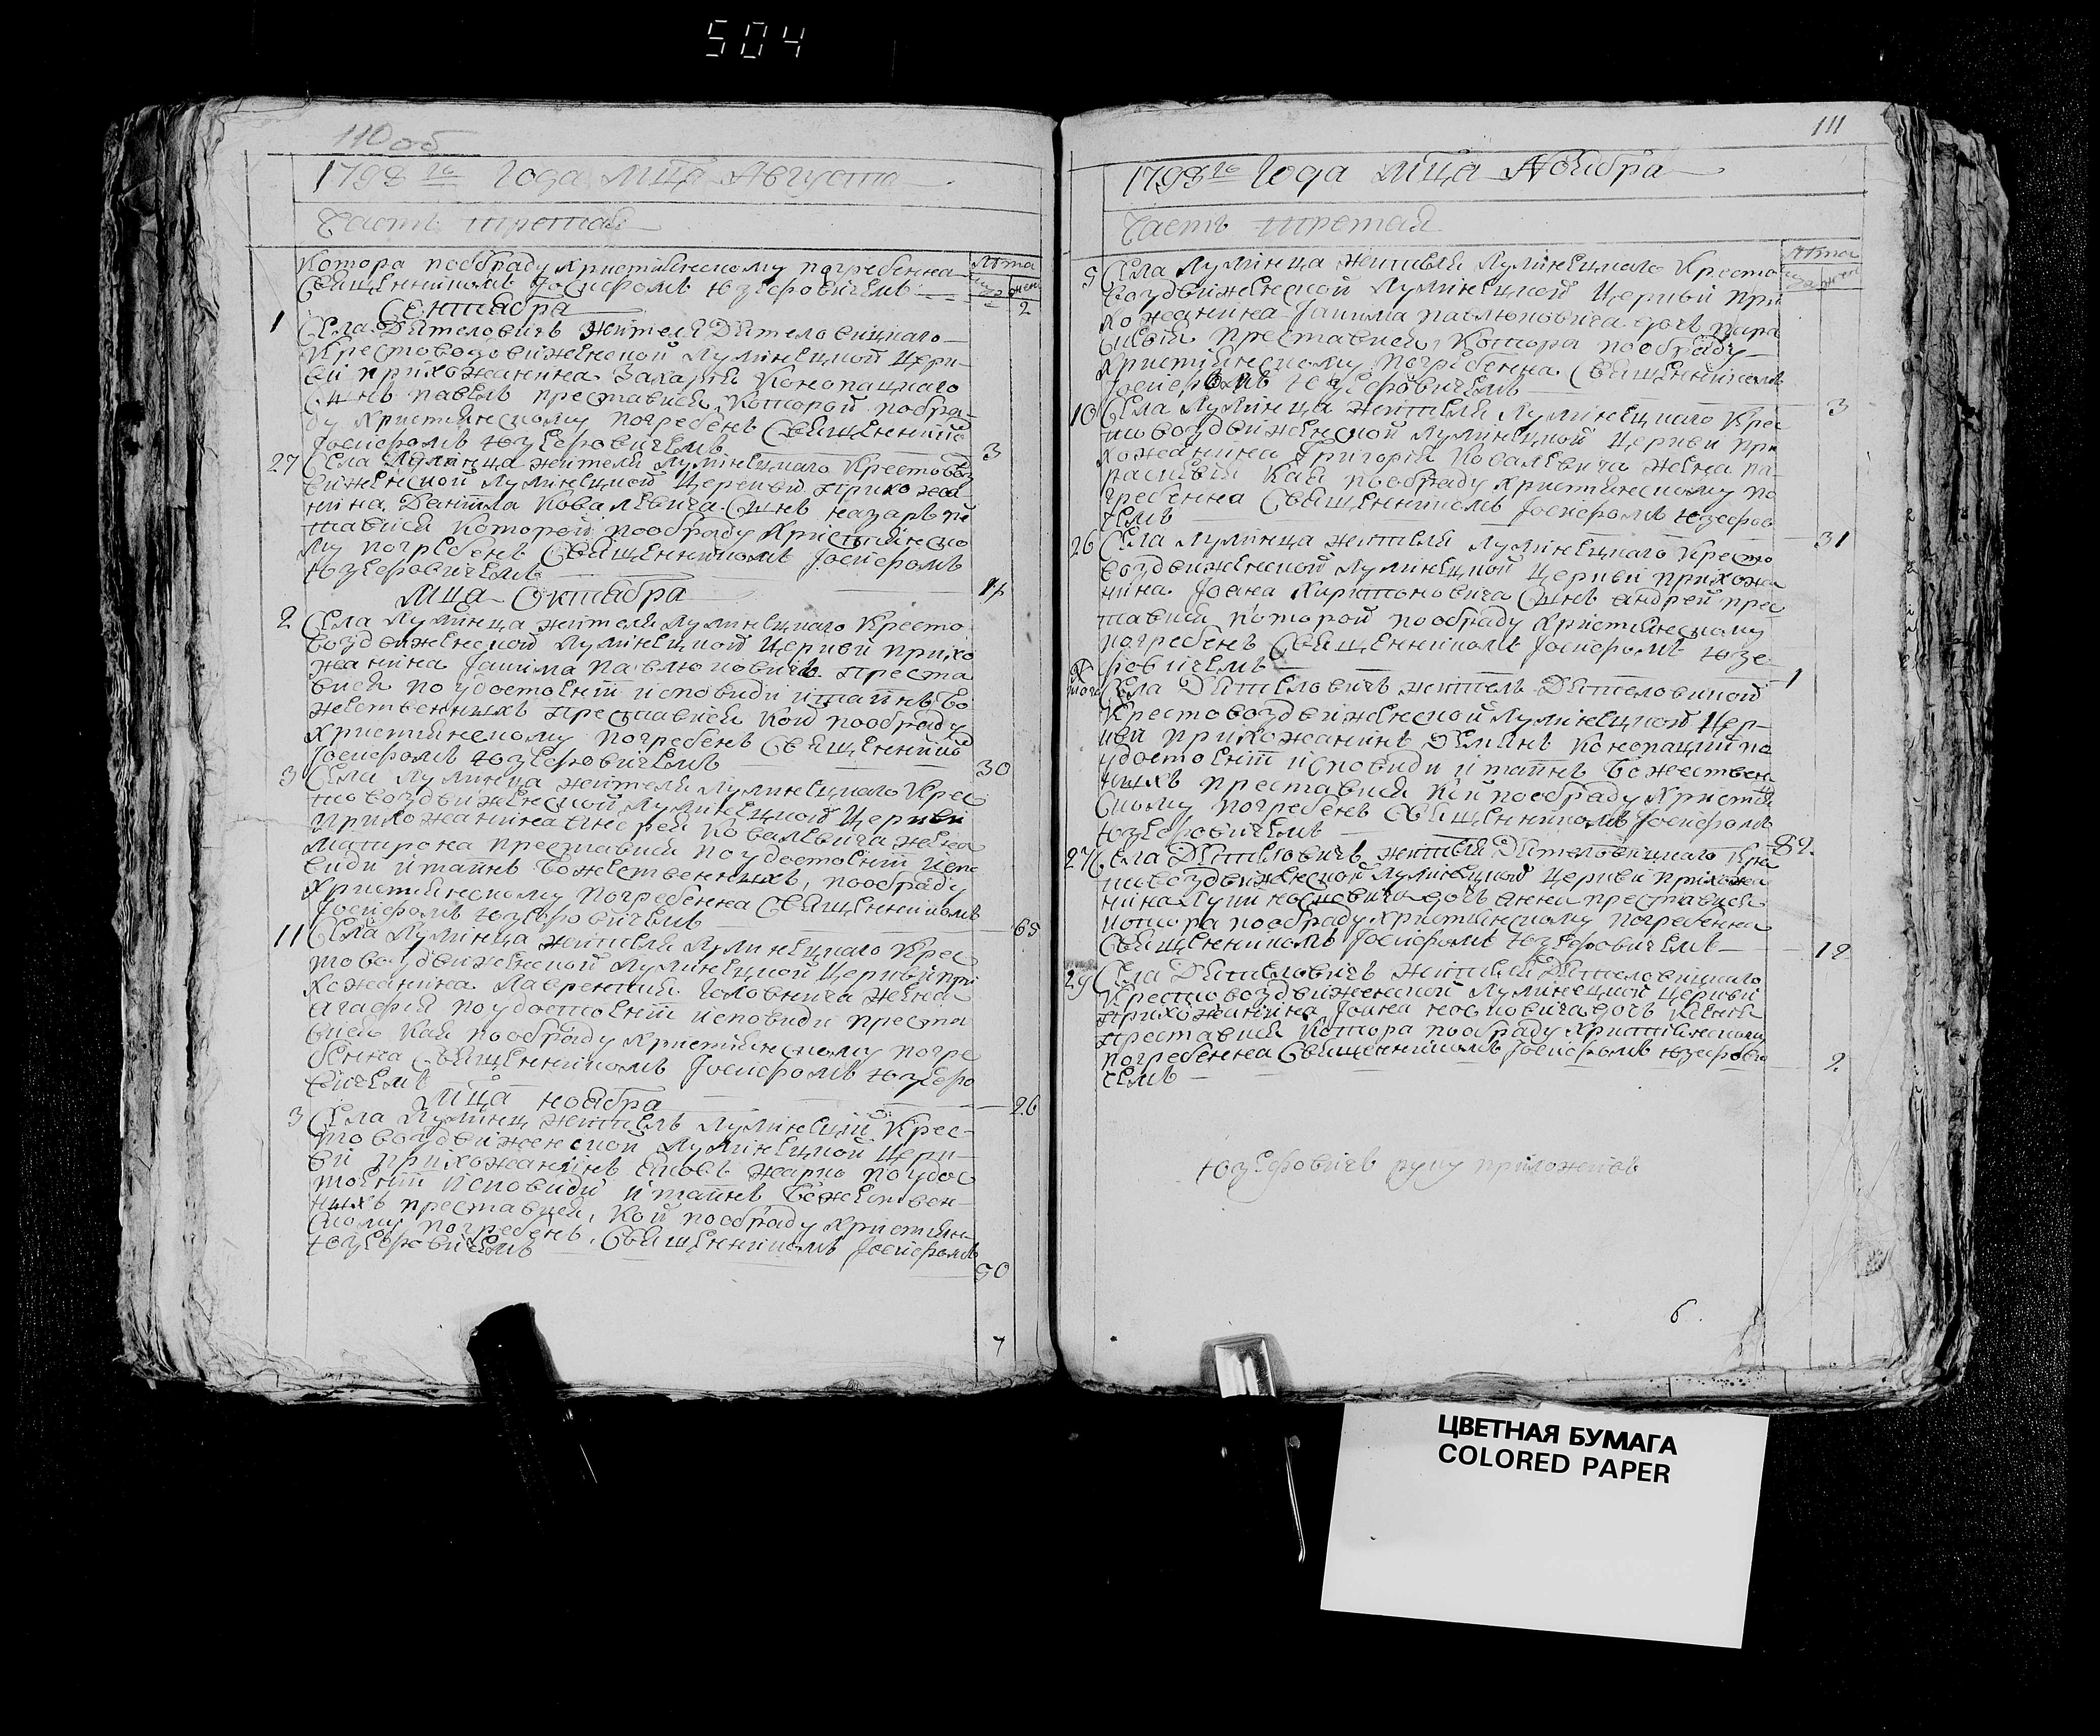 504
110 об
1798 го Года мца Августа
Часть третая
Лѣта
Котора пообряду християнскому погребенна
Священникомъ Іосифомъ Юзефовичемъ
2
Сентября
1 Села Дятеловичъ жителя Дятеловицкаго
Крестовоздвиженской Лулинецкой Церк-
ви прихожанина Захарія Конопацкаго
Сынъ павелъ преставися, которой пообря-
ду християнскому погребенъ Священнико
Іосифомъ Юзефовичемъ
3
27 Села Лулинца жителя Лулинецкаго Крестовоз
движенской Лулинецкой Церкви прихожа-
нина Данила Ковалевича Сынъ назаръ пре
ставися которой пообряду Християнско
му погребенъ Священникомъ Іосифомъ
Юзефовичемъ
мца Октября
2 Села Лулинца жителя Лулинецкаго Кресто
воздвиженской Лулинецкой Церкви прихо
жанина Іакима павлюковичъ преста
вися по удостоеніи исповиди и таинъ Бо
жественныхъ преставися кой пообряду
Християнскому погребенъ Священнико
Іосифомъ Юзефовичемъ
30
3 Села Лулинца жителя Лулинецкаго Крес
товоздвиженской Лулинецкой Церкви
прихожанина Андрея Ковалевича жена
матрона преставися по удостоеніи испо
види и таинъ Божественныхъ, пообряду
Християнскому погребенна Священникомъ
Іосифомъ Юзефовичемъ
65
11 Села Лулинца жителя Лулинецкаго Крес
товоздвиженской Лулинецкой Церкви при
хожанина Лаврентия Головнича жена
агафия по удостоеніи исповиди преста
вися кая пообряду Християнскому погре
бенна Священникомъ Іосифомъ Юзефо
вичемъ
26
мца ноября
3 Села Лулинца житель Лулинецкій Крес-
товоздвиженской Лулинецкой Церк-
ви прихожанинъ жарко по удос
тоеніи исповиди и таинъ Божествен-
ныхъ преставися, кой пообряду християн
скому погребенъ, Священникомъ Іосифомъ
Юзефовичемъ
50
7
111
1798 го Года мца Ноября
Часть третая
Лѣта
5 Села Лулинца жителя Лулинецкаго Кресто
воздвиженской Лулинецкой Церкви при
хожанина Іакима павлюковича дочъ пара
скевія преставися, котора пообряду
християнскому погребенна Священникомъ
Іосифомъ Юзефовичемъ
3
10 Села Лулинца жителя Лулинецкаго Крес
товоздвиженской Лулинецкой Церкви при
хожанина Григорія Ковалевича жена па
раскевія кая пообряду християнскому по
гребенна Священникомъ Іосифомъ Юзефов
чемъ
31
26 Села Лулинца жителя Лулинецкаго Кресто
воздвиженской Лулинецкой Церкви прихожа
нина Іоана Харитоновича Сынъ андрей прес
тавися которой пообряду християнскому
погребенъ Священникомъ Іосифомъ Юзе-
фовичемъ
1
Села Дятеловичъ житель Дятеловицкой
Крестовоздвиженской Лулинецкой Цер-
кви прихожанинъ Демянъ Конопацкий по
удостоеніи исповиди и таинъ Божествен
ныхъ преставися кой пообряду християн
скому погребенъ Священникомъ Іосифомъ
Юзефовичемъ
82.
27 Села Дятеловичъ жителя Дятеловицкаго Крес
товоздвиженской Лулинецкой Церкви прихожа
нина Луки носковича дочъ анна преставися
котора пообряду християнскому погребенна
Священникомъ Іосифомъ Юзефовичемъ
12
29 Села Дятеловичъ жителя Дятеловицкаго
Крестовоздвиженской Лулинецкой Церкви
прихожанина Іоана носковича дочъ Ксенія
преставися котора пообряду християнскому
погребенна Священникомъ Іосифомъ Юзефови
чемъ
2
Юзефовичъ руку приложилъ
6.
ЦВЕТНАЯ БУМАГА
COLORED PAPER